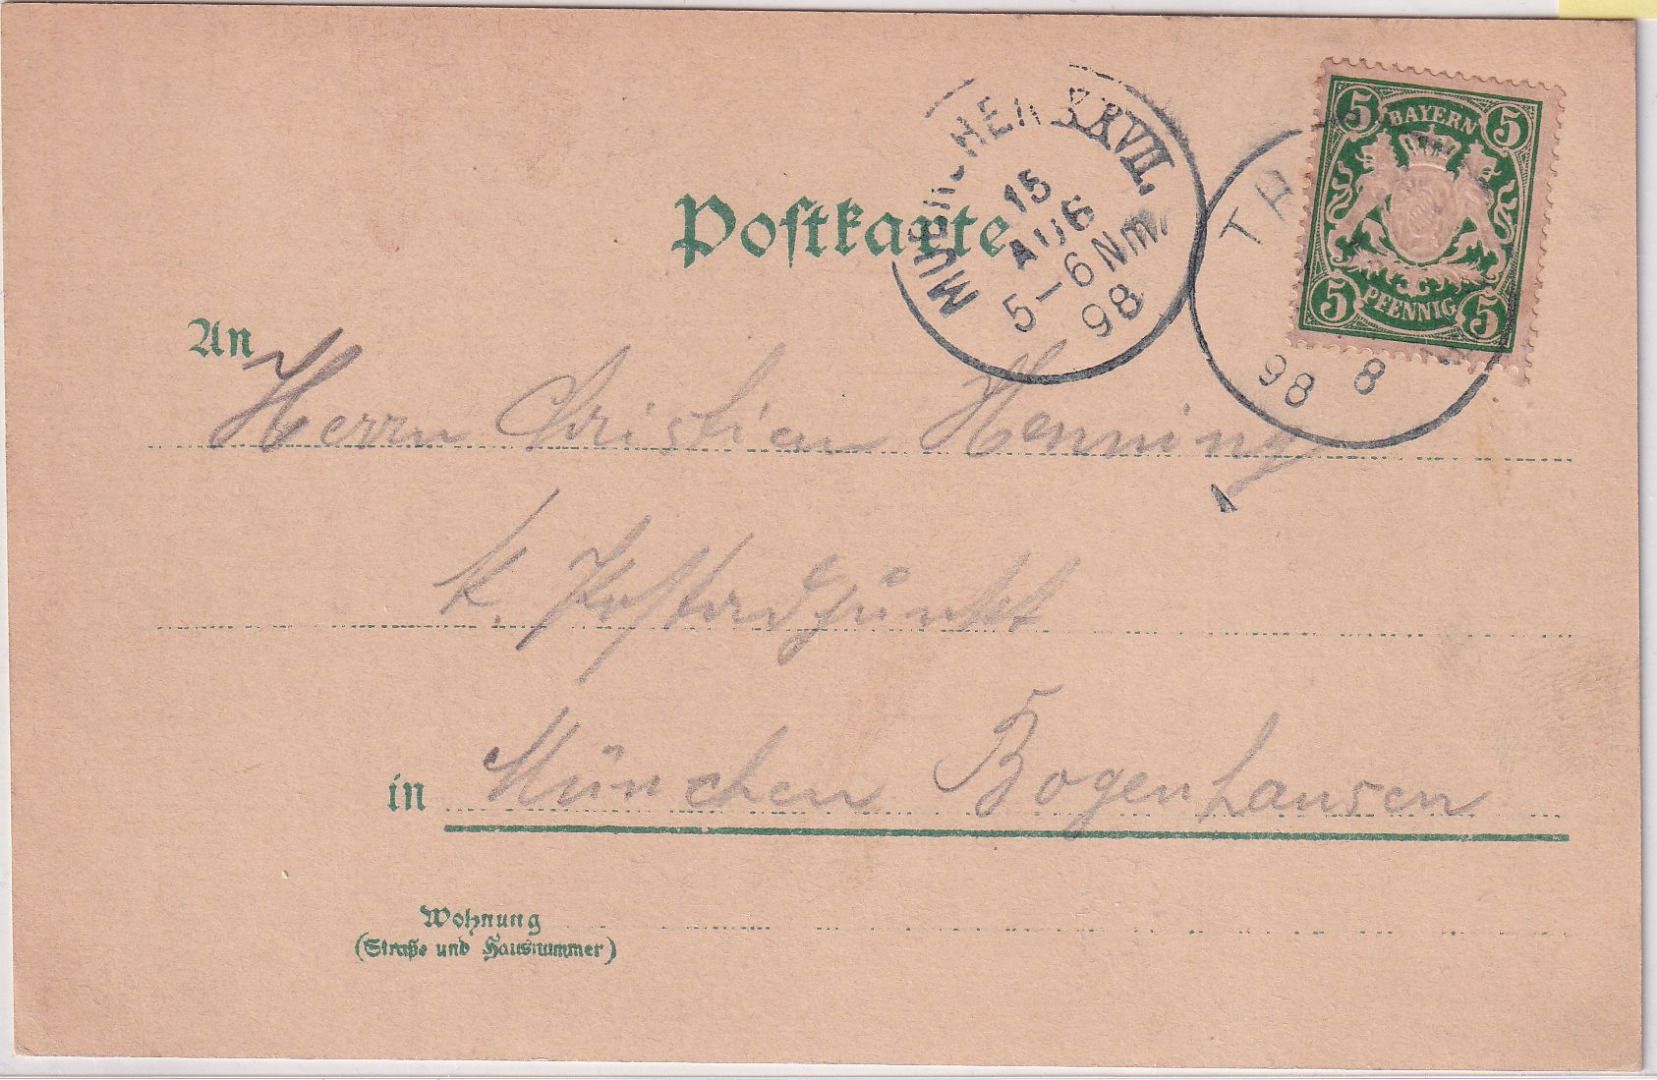 Postkarte
MÜNCHEN XXVII.
15
AUG
5-6 Nm
98
5 BAYERN 5
5 PFENNIG 5
98 8
An Herrn Christian Henning
k. Postadjunkt
in München Bogenhausen
Wohnung
(Straße und Hausnummer)